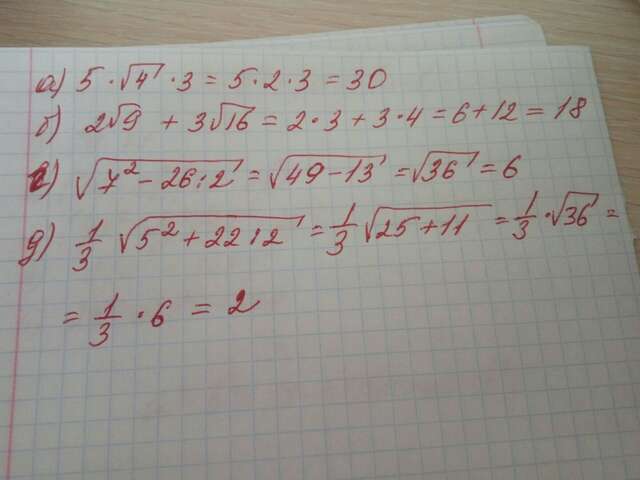 а) 5 · √4 · 3 = 5 · 2 · 3 = 30
б) 2√9 + 3√16 = 2 · 3 + 3 · 4 = 6 + 12 = 18
в) √(7² - 26 : 2) = √(49 - 13) = √36 = 6
г) 1/3 √(5² + 22 : 2) = 1/3 √(25 + 11) = 1/3 · √36 =
= 1/3 · 6 = 2